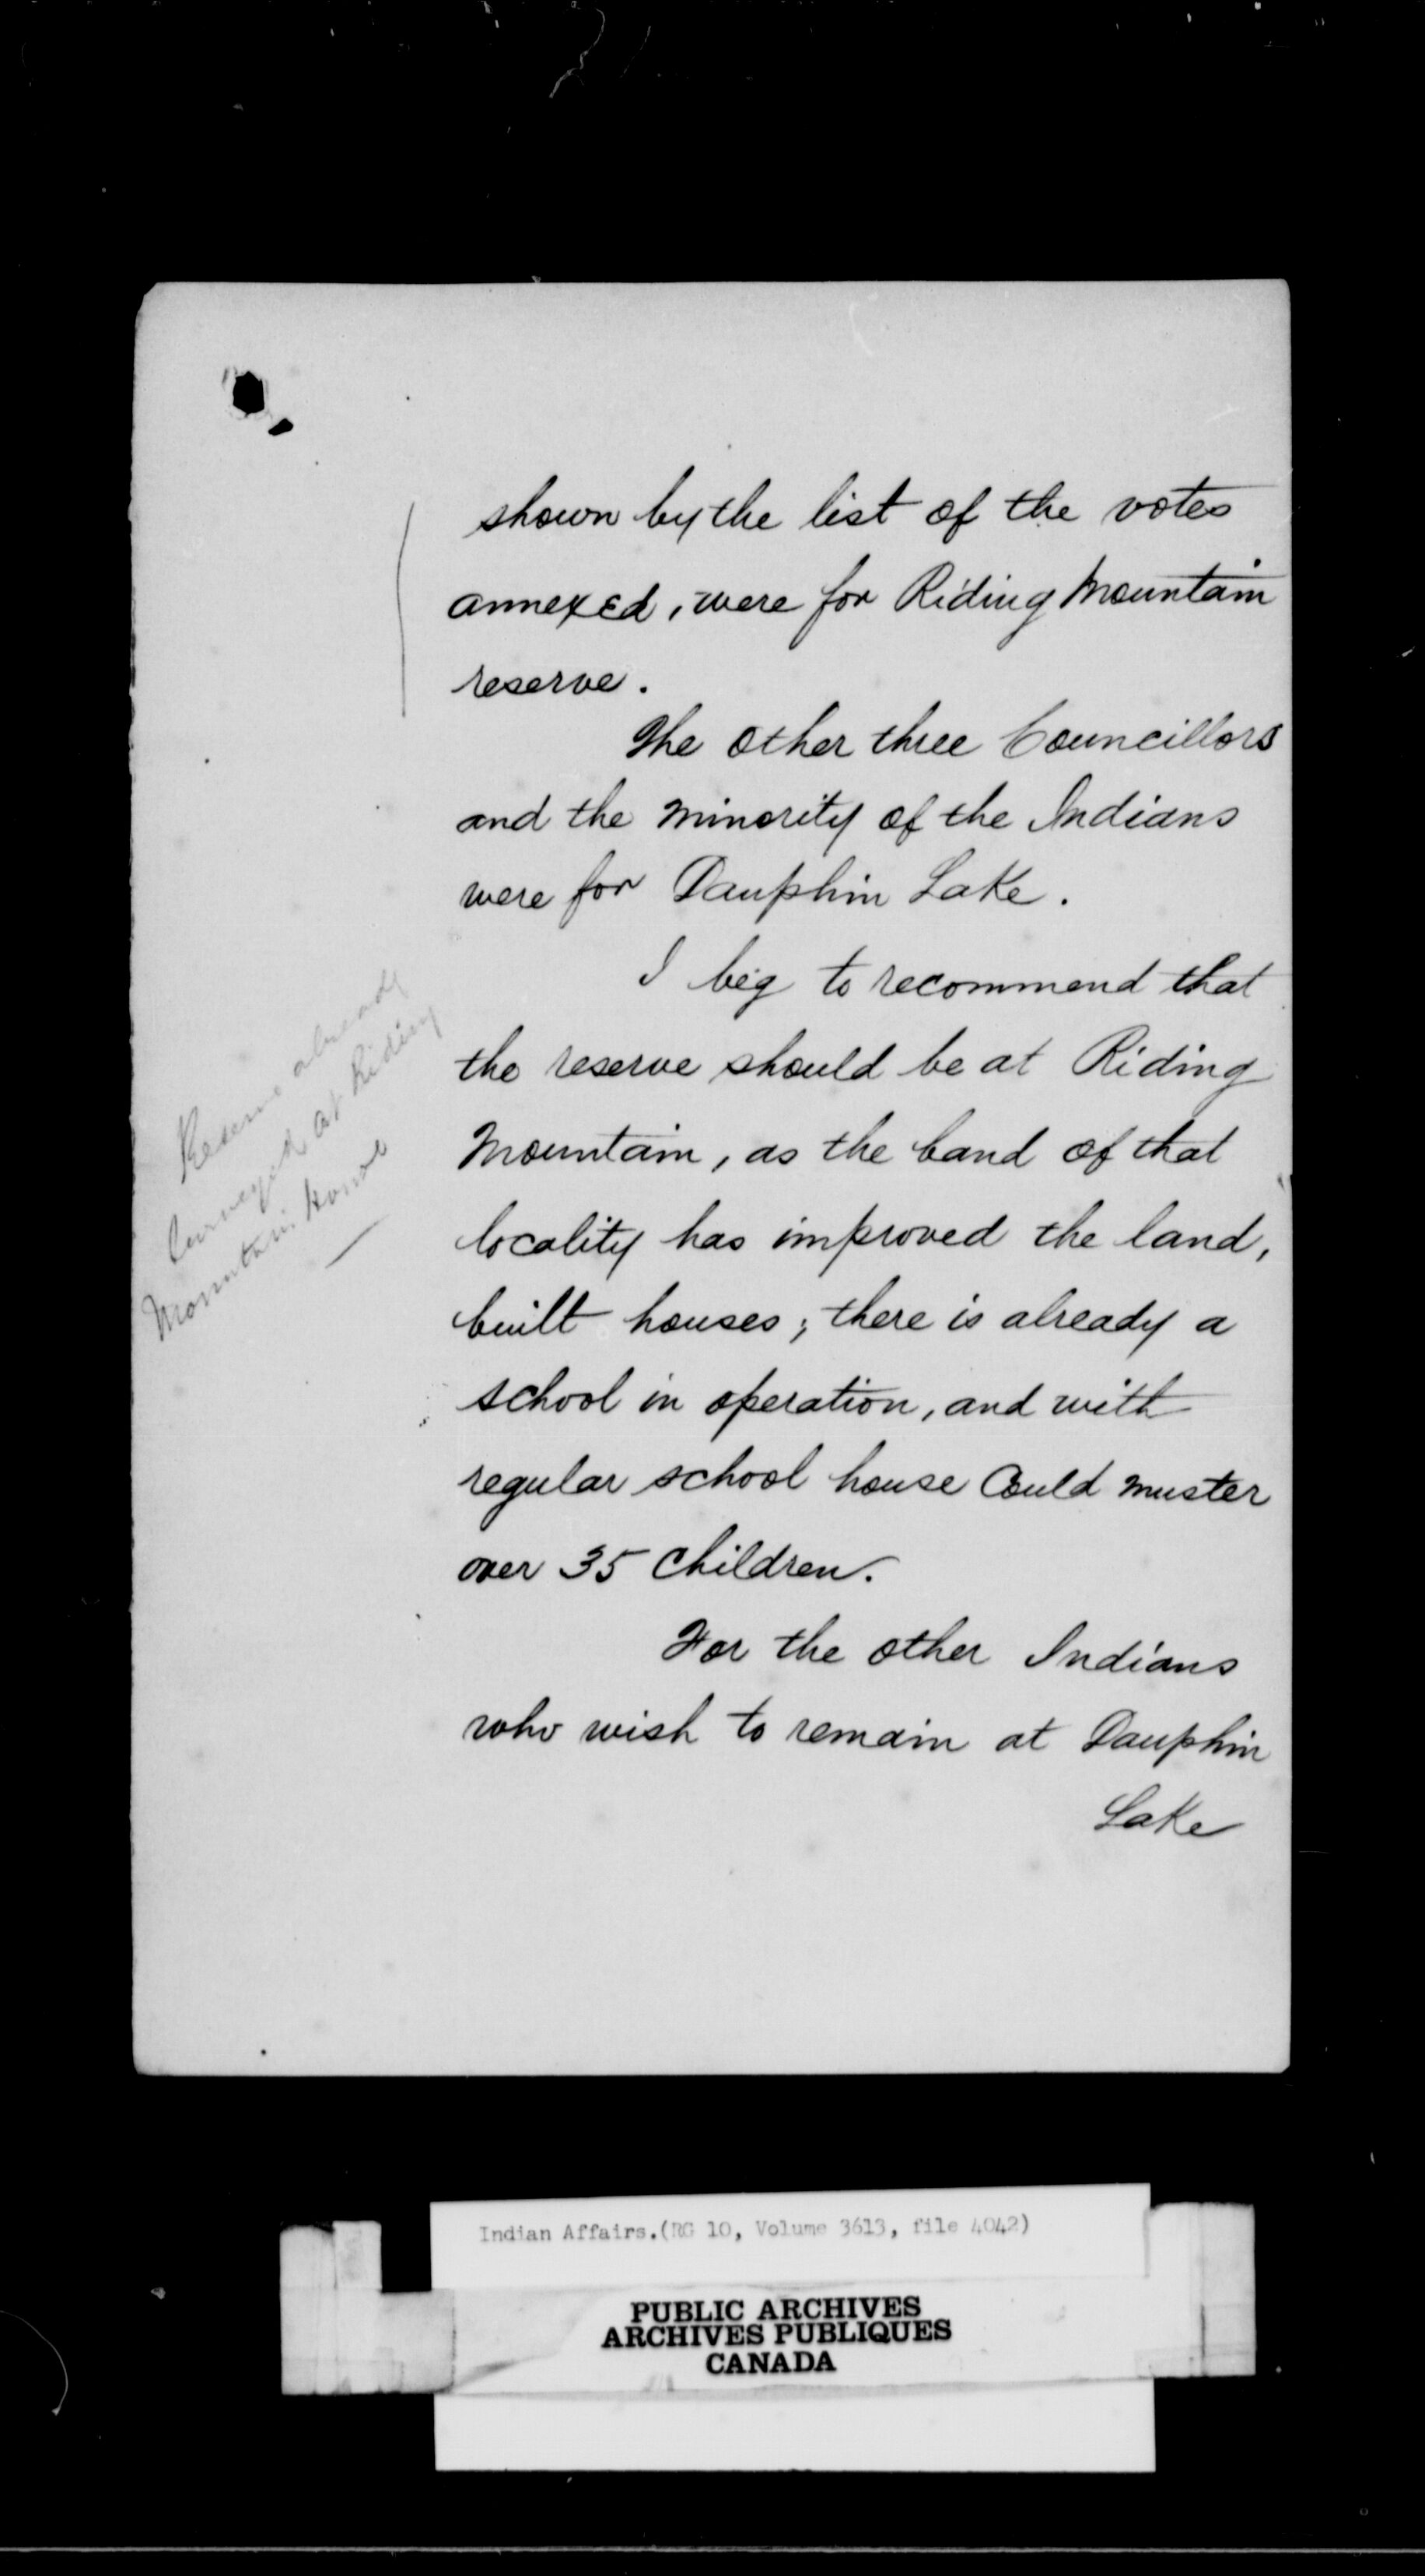 shown by the list of the votes
annexed, were for Riding Mountain
reserve.
The other three Councillors
and the minority of the Indians
were for Dauphin Lake.
I beg to recommend that
the reserve should be at Riding
Mountain, as the band of that
locality has improved the land,
built houses; there is already a
school in operation, and with
regular school house Could muster
over 35 Children.
For the other Indians
who wish to remain at Dauphin
Lake
Reserve already
surveyed at Riding
Mountain House
Indian Affairs.(RG 10, Volume 3613, file 4042)
PUBLIC ARCHIVES
ARCHIVES PUBLIQUES
CANADA